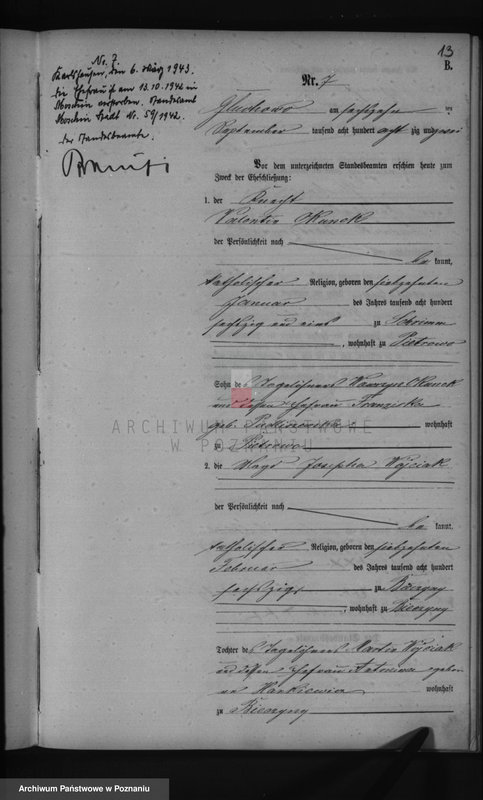 13
B.
No. 7.
Karlshausen, den 6. März 1943.
die Ehefrau ist am 13.10.1942 in
Moschin verstorben. Standesamt
Moschin Stadt No. 59/1942.
der Standesbeamte.
Nr. 7
Gluchowo am sechzehn ten
September tausend acht hundert acht zig und zwei
Vor dem unterzeichneten Standesbeamten erschien heute zum
Zweck der Eheschließung:
1. der Knecht
Valentin
der Persönlichkeit nach
be kannt,
katholischer Religion, geboren den siebzehnten
Januar des Jahres tausend acht hundert
sechszig und eins zu Schrimm
, wohnhaft zu Pietrowo
Sohn des Tagelöhners
und dessen Ehefrau Franziska
geb. wohnhaft
zu Pietrowo
ARCHIWUM PAŃSTWOWE
W POZNANIU
2. die Magd Josepha Wojciak
der Persönlichkeit nach
be kannt,
katholischer Religion, geboren den siebzehnten
Februar des Jahres tausend acht hundert
sechszig zu
, wohnhaft zu
Tochter des Tagelöhners Martin Wojciak
und dessen Ehefrau Antonina gebor
ne wohnhaft
zu
Archiwum Państwowe w Poznaniu